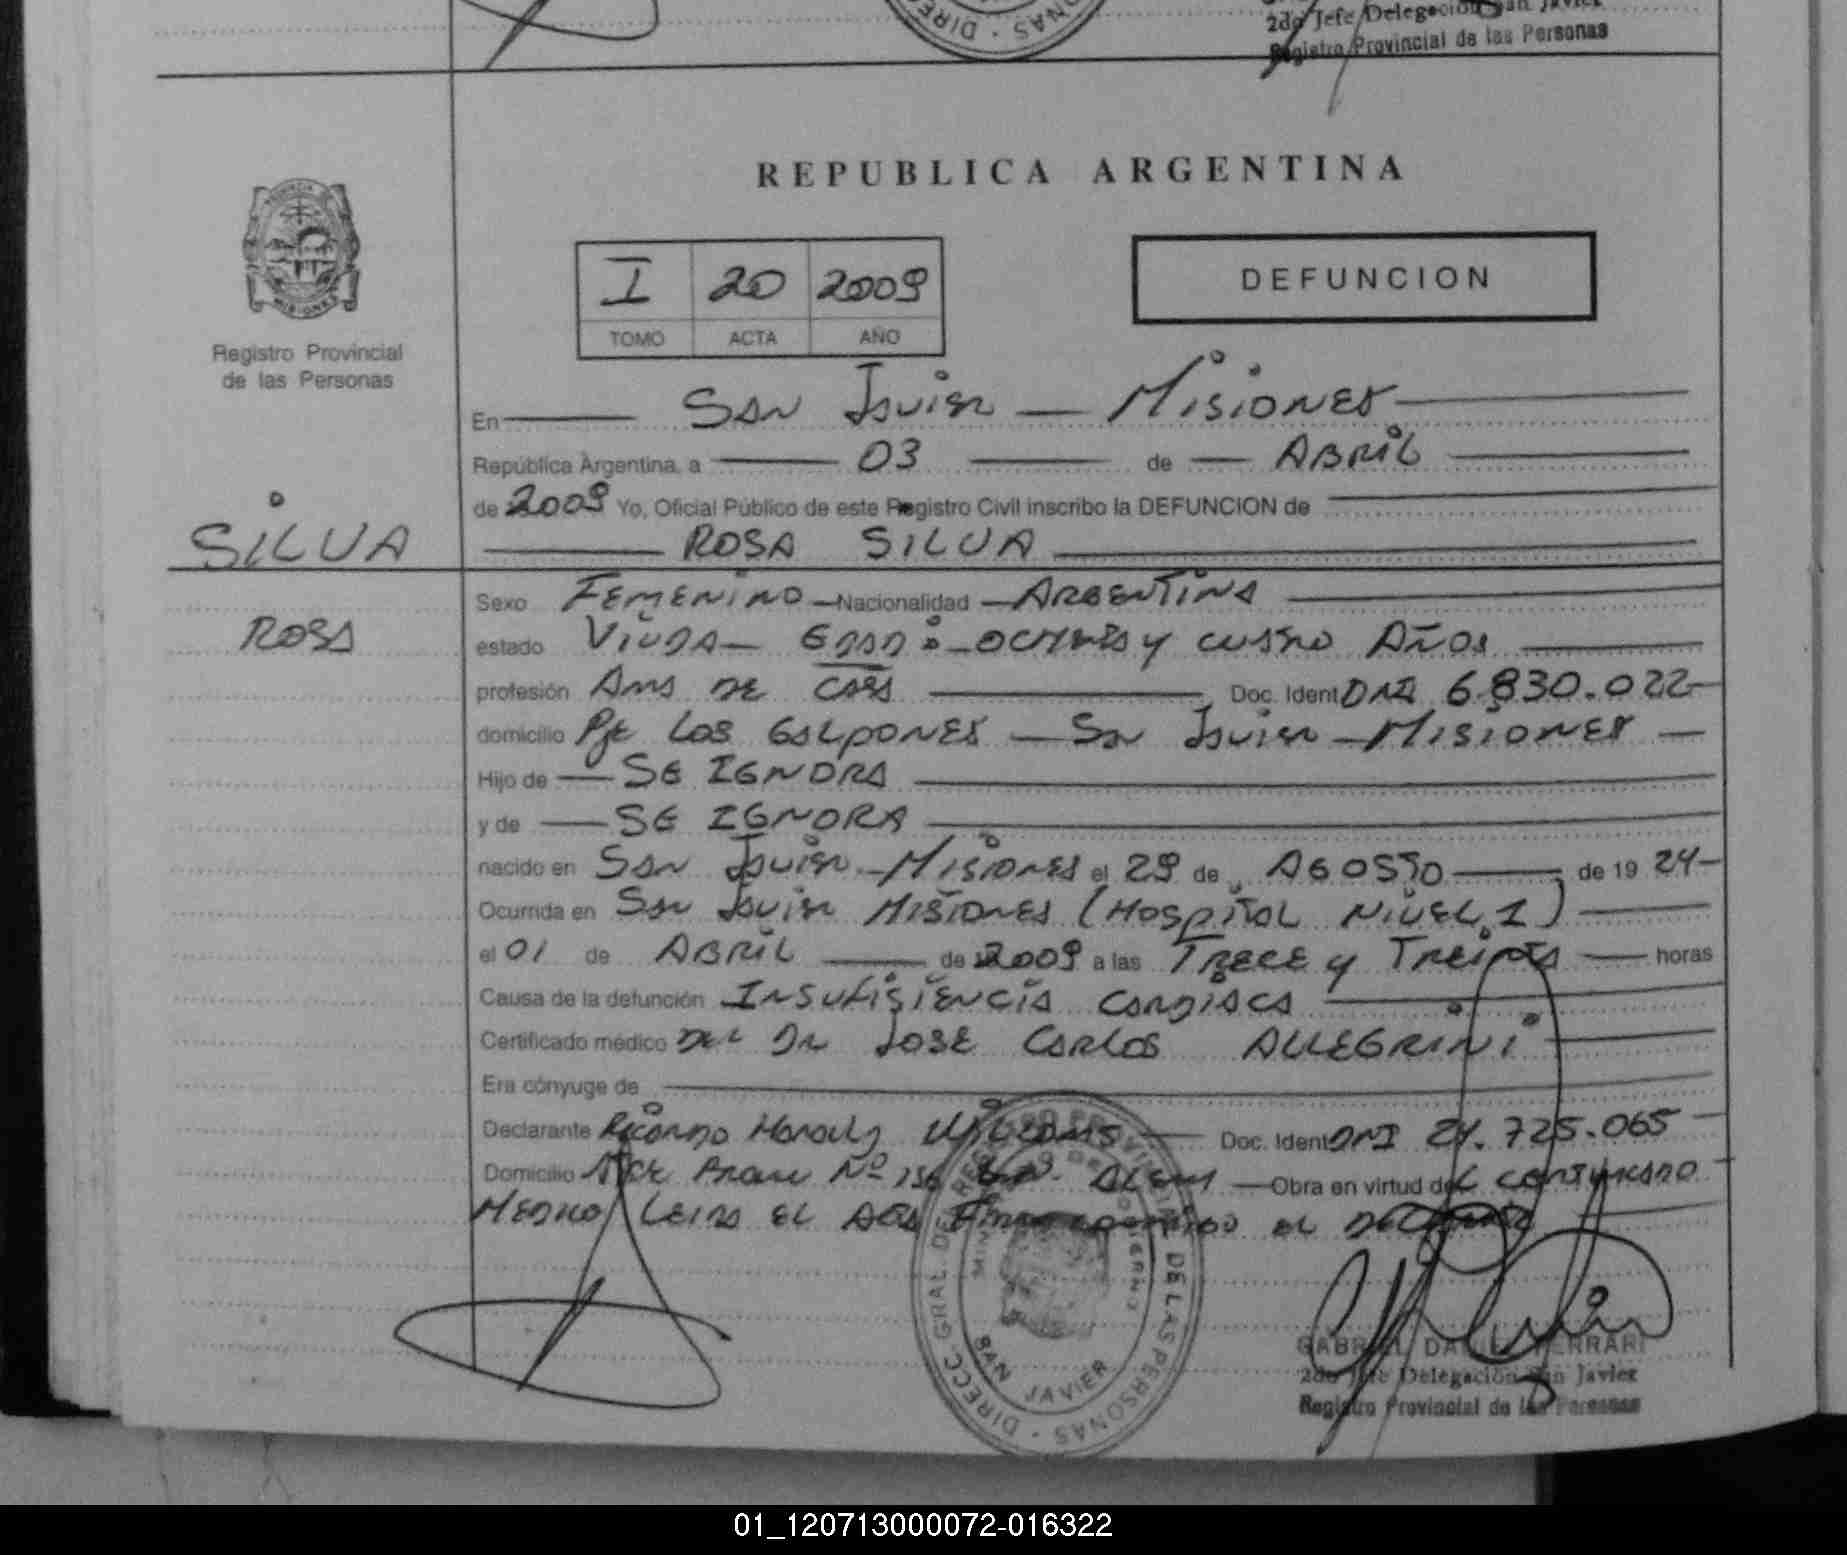 2do Jefe Delegación San Javier
Registro Provincial de las Personas
REPUBLICA ARGENTINA
I 20 2009
TOMO ACTA AÑO
DEFUNCION
Registro Provincial
de las Personas
En San Javier Misiones
República Argentina, a 03 de ABRIL
de 2009 Yo, Oficial Público de este Registro Civil inscribo la DEFUNCION de
SILVA
ROSA SILVA
Sexo FEMENINO Nacionalidad ARGENTINA
ROSA
estado VIUDA EDAD: OCHENTA y CUATRO AÑOS
profesión AMA DE CASA Doc. Ident DNI 6.830.022
domicilio Pje LOS GALPONES - San Javier - MISIONES
Hijo de SE IGNORA
y de SE IGNORA
nacido en SAN Javier - MISIONES el 29 de AGOSTO de 19 24
Ocurrida en San Javier MISIONES (HOSPITAL NIVEL 1)
el 01 de ABRIL de 2009 a las TRECE y TREINTA horas
Causa de la defunción INSUFISIENCIA CARDIACA
Certificado médico DEL DR JOSE CARLOS ALLEGRINI
Era cónyuge de
Declarante Ricardo Doc. Ident DNI 24.725.065
Domicilio Nº ALEM Obra en virtud del CERTIFICADO
MEDICO LEIDA EL ACTA EL
DIREC. GRAL. DEL REGISTRO PROVINCIAL DE LAS PERSONAS
SAN JAVIER
GABRIEL DANIEL FERRARI
2do Jefe Delegación San Javier
Registro Provincial de las Personas
01_120713000072-016322